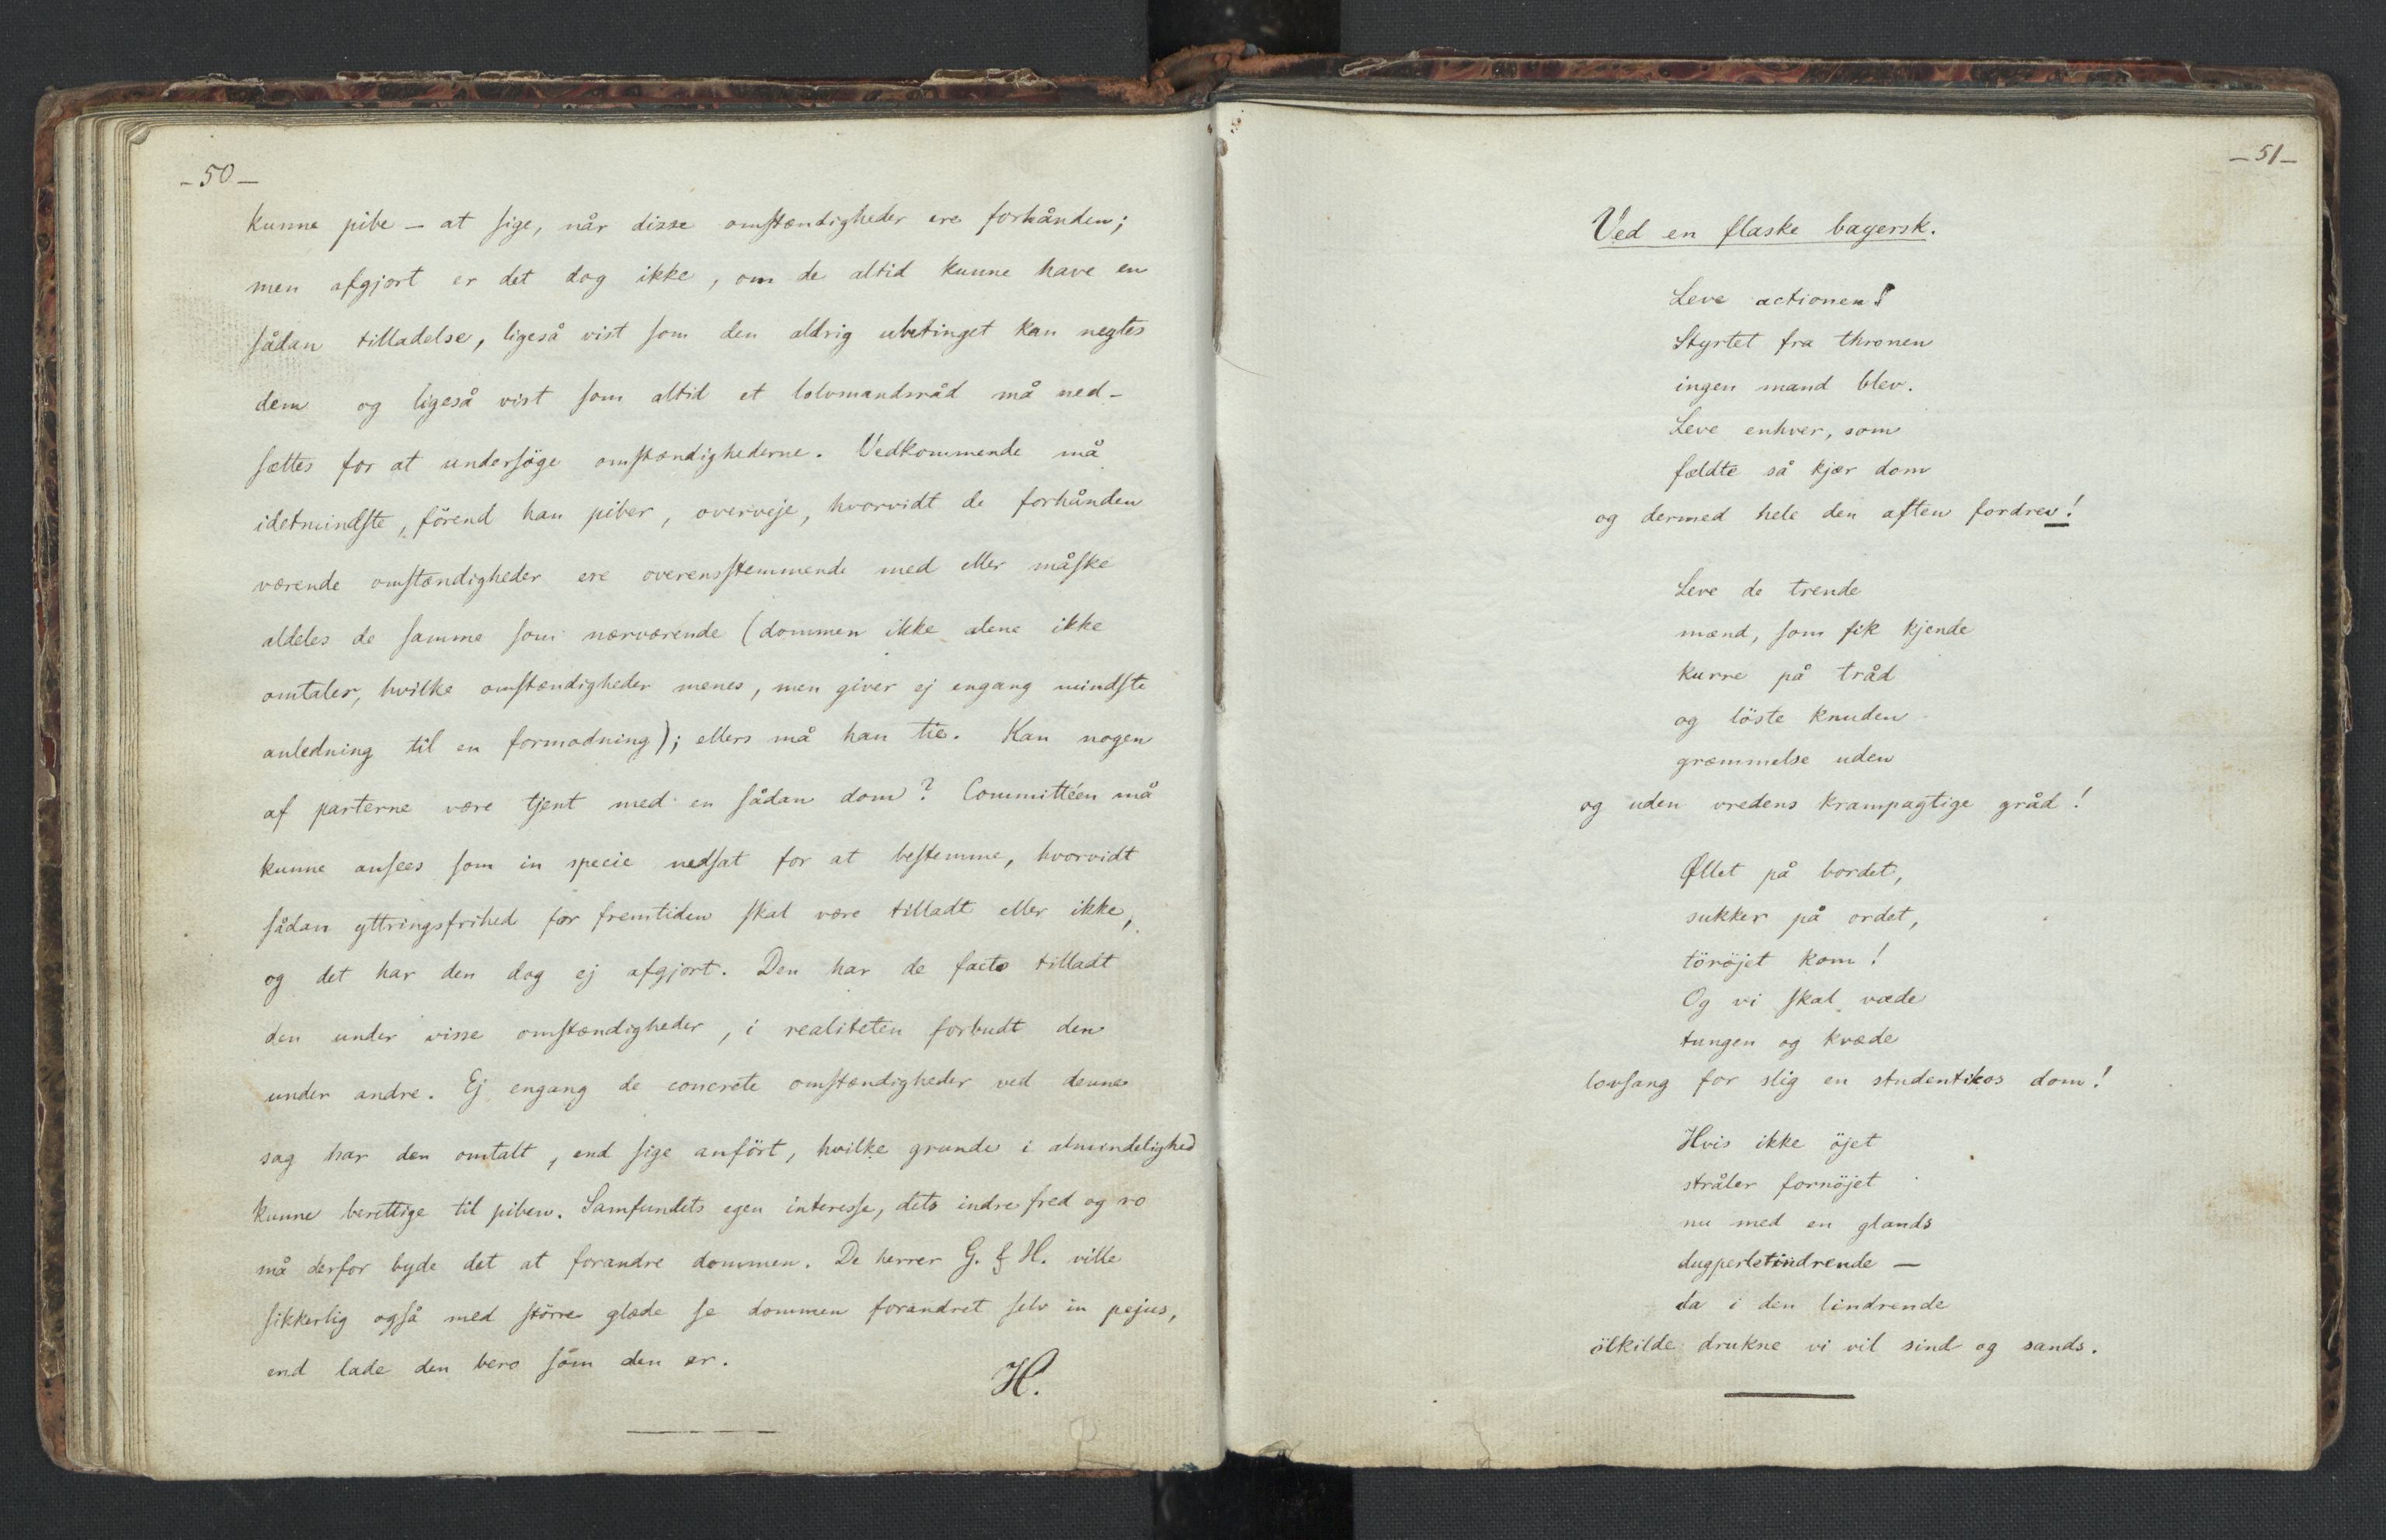 - 50 -
kunne pibe - at sige, når disse omstændigheder ere forhånden;
men afgjort er det dog ikke, om de altid kunne have en
sådan tilladelse, ligeså vist som den aldrig ubetinget kan negtes
dem og ligeså vist som altid et tolvmandsråd må ned-
sættes for at undersöge omstændighederne. Vedkommende må
idetmindste, förend han piber, overveje, hvorvidt de forhånden
værende omstændigheder ere overensstemmende med eller måske
aldeles de samme som nærværende (dommen ikke alene ikke
omtaler, hvilke omstændigheder menes, men giver ej engang mindste
anledning til en formodning); ellers må han tie. Kan nogen
af parterne være tjent med en sådan dom? Committéen må
kunne ansees som in specie nedsat for at bestemme, hvorvidt
sådan yttringsfrihed for fremtiden skal være tilladt eller ikke,
og det har den dog ej afgjort. Den har de facto tilladt
den under visse omstændigheder, i realiteten forbudt den
under andre. Ej engang de concrete omstændigheder ved denne
sag har den omtalt, end sige anfört, hvilke grunde i almindelighed
kunne berettige til piben. Samfundets egen interesse, dets indre fred og ro
må derfor byde det at forandre dommen. De herrer G. & H. ville
sikkerlig også med större glæde se dommen forandret selv in pejus,
end lade den bero som den er.
H.
- 51 -
Ved en flaske bayersk.
Leve actionen!
Styrtet fra thronen
ingen mand blev.
Leve enhver, som
fældte så kjær dom
og dermed hele den aften fordrev!
Leve de trende
mænd, som fik kjende
kurre på tråd
og löste knuden
græmmelse uden
og uden vredens krampagtige gråd!
Øllet på bordet,
sukker på ordet,
töröjet kom!
Og vi skal væde
tungen og kvæde
lovsang for slig en studentikos dom!
Hvis ikke öjet
stråler fornöjet
nu med en glands
dugperletindrende -
da i den lindrende
ölkilde drukne vi vil sind og sands.